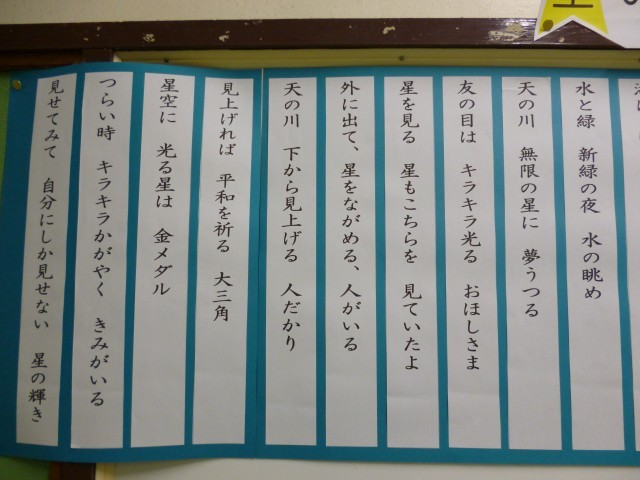 水と緑　新緑の夜　水の眺め
天の川　無限の星に　夢うつる
友の目は　キラキラ光る　おほしさま
星を見る　星もこちらを　見ていたよ
外に出て、星をながめる、人がいる
天の川　下から見上げる　人だかり
見上げれば　平和を祈る　大三角
星空に　光る星は　金メダル
つらい時　キラキラかがやく　きみがいる
見せてみて　自分にしか見せない　星の輝き